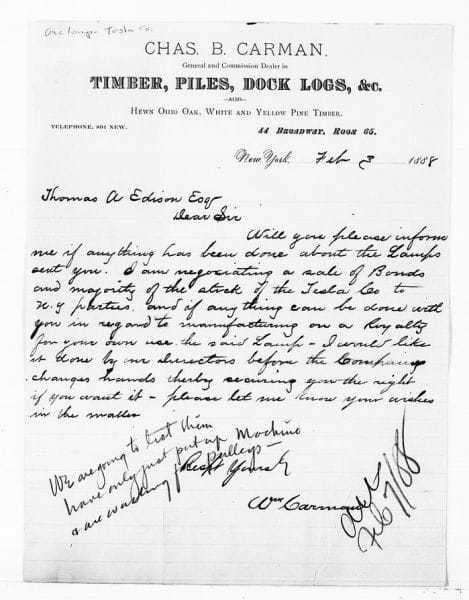 Arc Lamps Tesla Co.
CHAS. B. CARMAN.
General and Commission Dealer in
TIMBER, PILES, DOCK LOGS, &c.
—ALSO—
HEWN OHIO OAK, WHITE AND YELLOW PINE TIMBER.
TELEPHONE, 891 NEW.
44 BROADWAY, ROOM 65.
New York. Feb 3 1888
Thomas A Edison Esq
Dear Sir
Will you please inform
me if anything has been done about the Lamps
sent you. I am negociating a sale of Bonds
and majority of the stock of the Tesla Co to
N.Y parties. and if any thing can be done with
you in regard to manufacturing on a Royalty
for your own use. the said Lamp - I would like
it done by our Directors before the Company
changes hands therby securing you the right
if you want it - please let me know your wishes
in the matter
Respt Yours
Wm Carman
We are going to test them
have only just put up Machine
& are waiting for Pulleys -
Feb 7/88